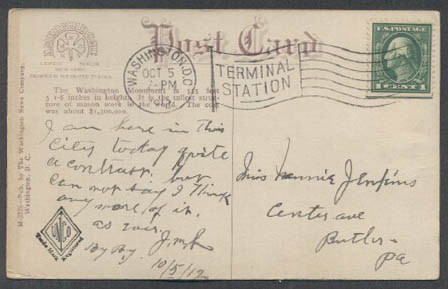 Post Card
LEIPZIG BERLIN
NEW YORK
WASHINGTON, D.C.
OCT 5
PM
TERMINAL
STATION
U.S. POSTAGE
1 CENT 1
The Washington Monument is 555 feet
5 1-8 inches in height. It is the tallest struc-
ture of mason work in the world. The cost
was about $1,300,000.
M-Pub. by The Washington News Company,
Washington, D. C.
I am here in this
City today quite
a contrast, but
can not say I think
any more of it.
as ever.
By By.
10/5/12
UNCO
Trade Mark Registered
Miss Nannie Jenkins
Center ave
Butler
Pa